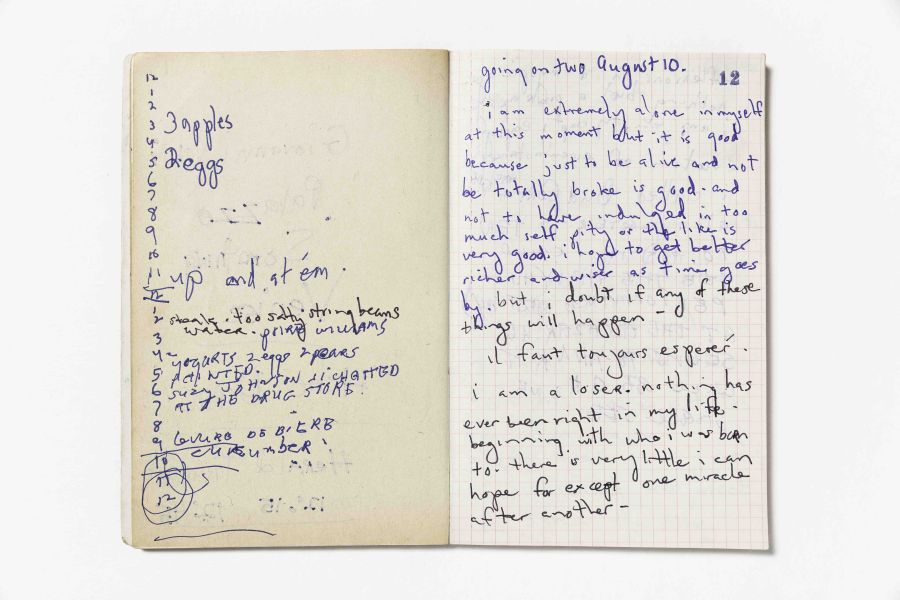 12
1
2
3
3 apples
4
5
2 eggs
6
7
8
9
10
11
up and at ém.
12
1
2
steak. too salty string beams
water. poire WILLIAMS
3
4
YOGURTS 2 eggs 2 pears
5
PAINTED.
6
SUZY JOHNSON i CHATTED
7
AT THE DRUG STORE.
8
9
LEVURE DE BIERE
10
CUCUMBER!
11
12
going on two August 10.
12
i am extremely alone in myself
at this moment but it is good
because just to be alive and not
be totally broke is good. and
not to have indulged in too
much self pity or the like is
very good. i hope to get better
richer and wiser as time goes
by. but i doubt if any of these
things will happen -
il faut toujours esperé.
i am a loser. nothing has
ever been right in my life.
beginning with who i was born
to. there is very little i can
hope for except one miracle
after another -